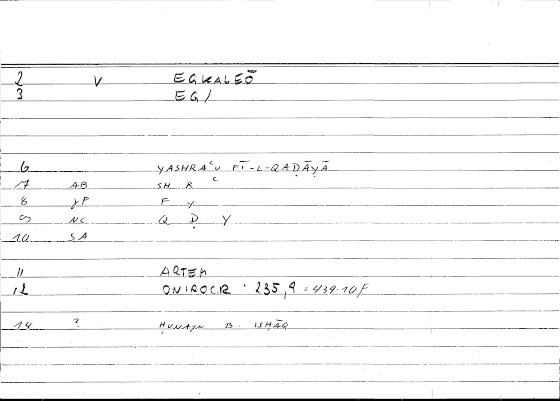 2 V EGKALEŌ
3 EG/
6 YASHRAʿU FĪ-L-QAḌĀYĀ
7 AB SH R ʿ
8 JP F Y
9 NC Q Ḍ Y
10 SA
11 ARTEM
12 ONIROCR. 235,9 = 439.10F
14 ? ḤUNAYN B. ISḤĀQ